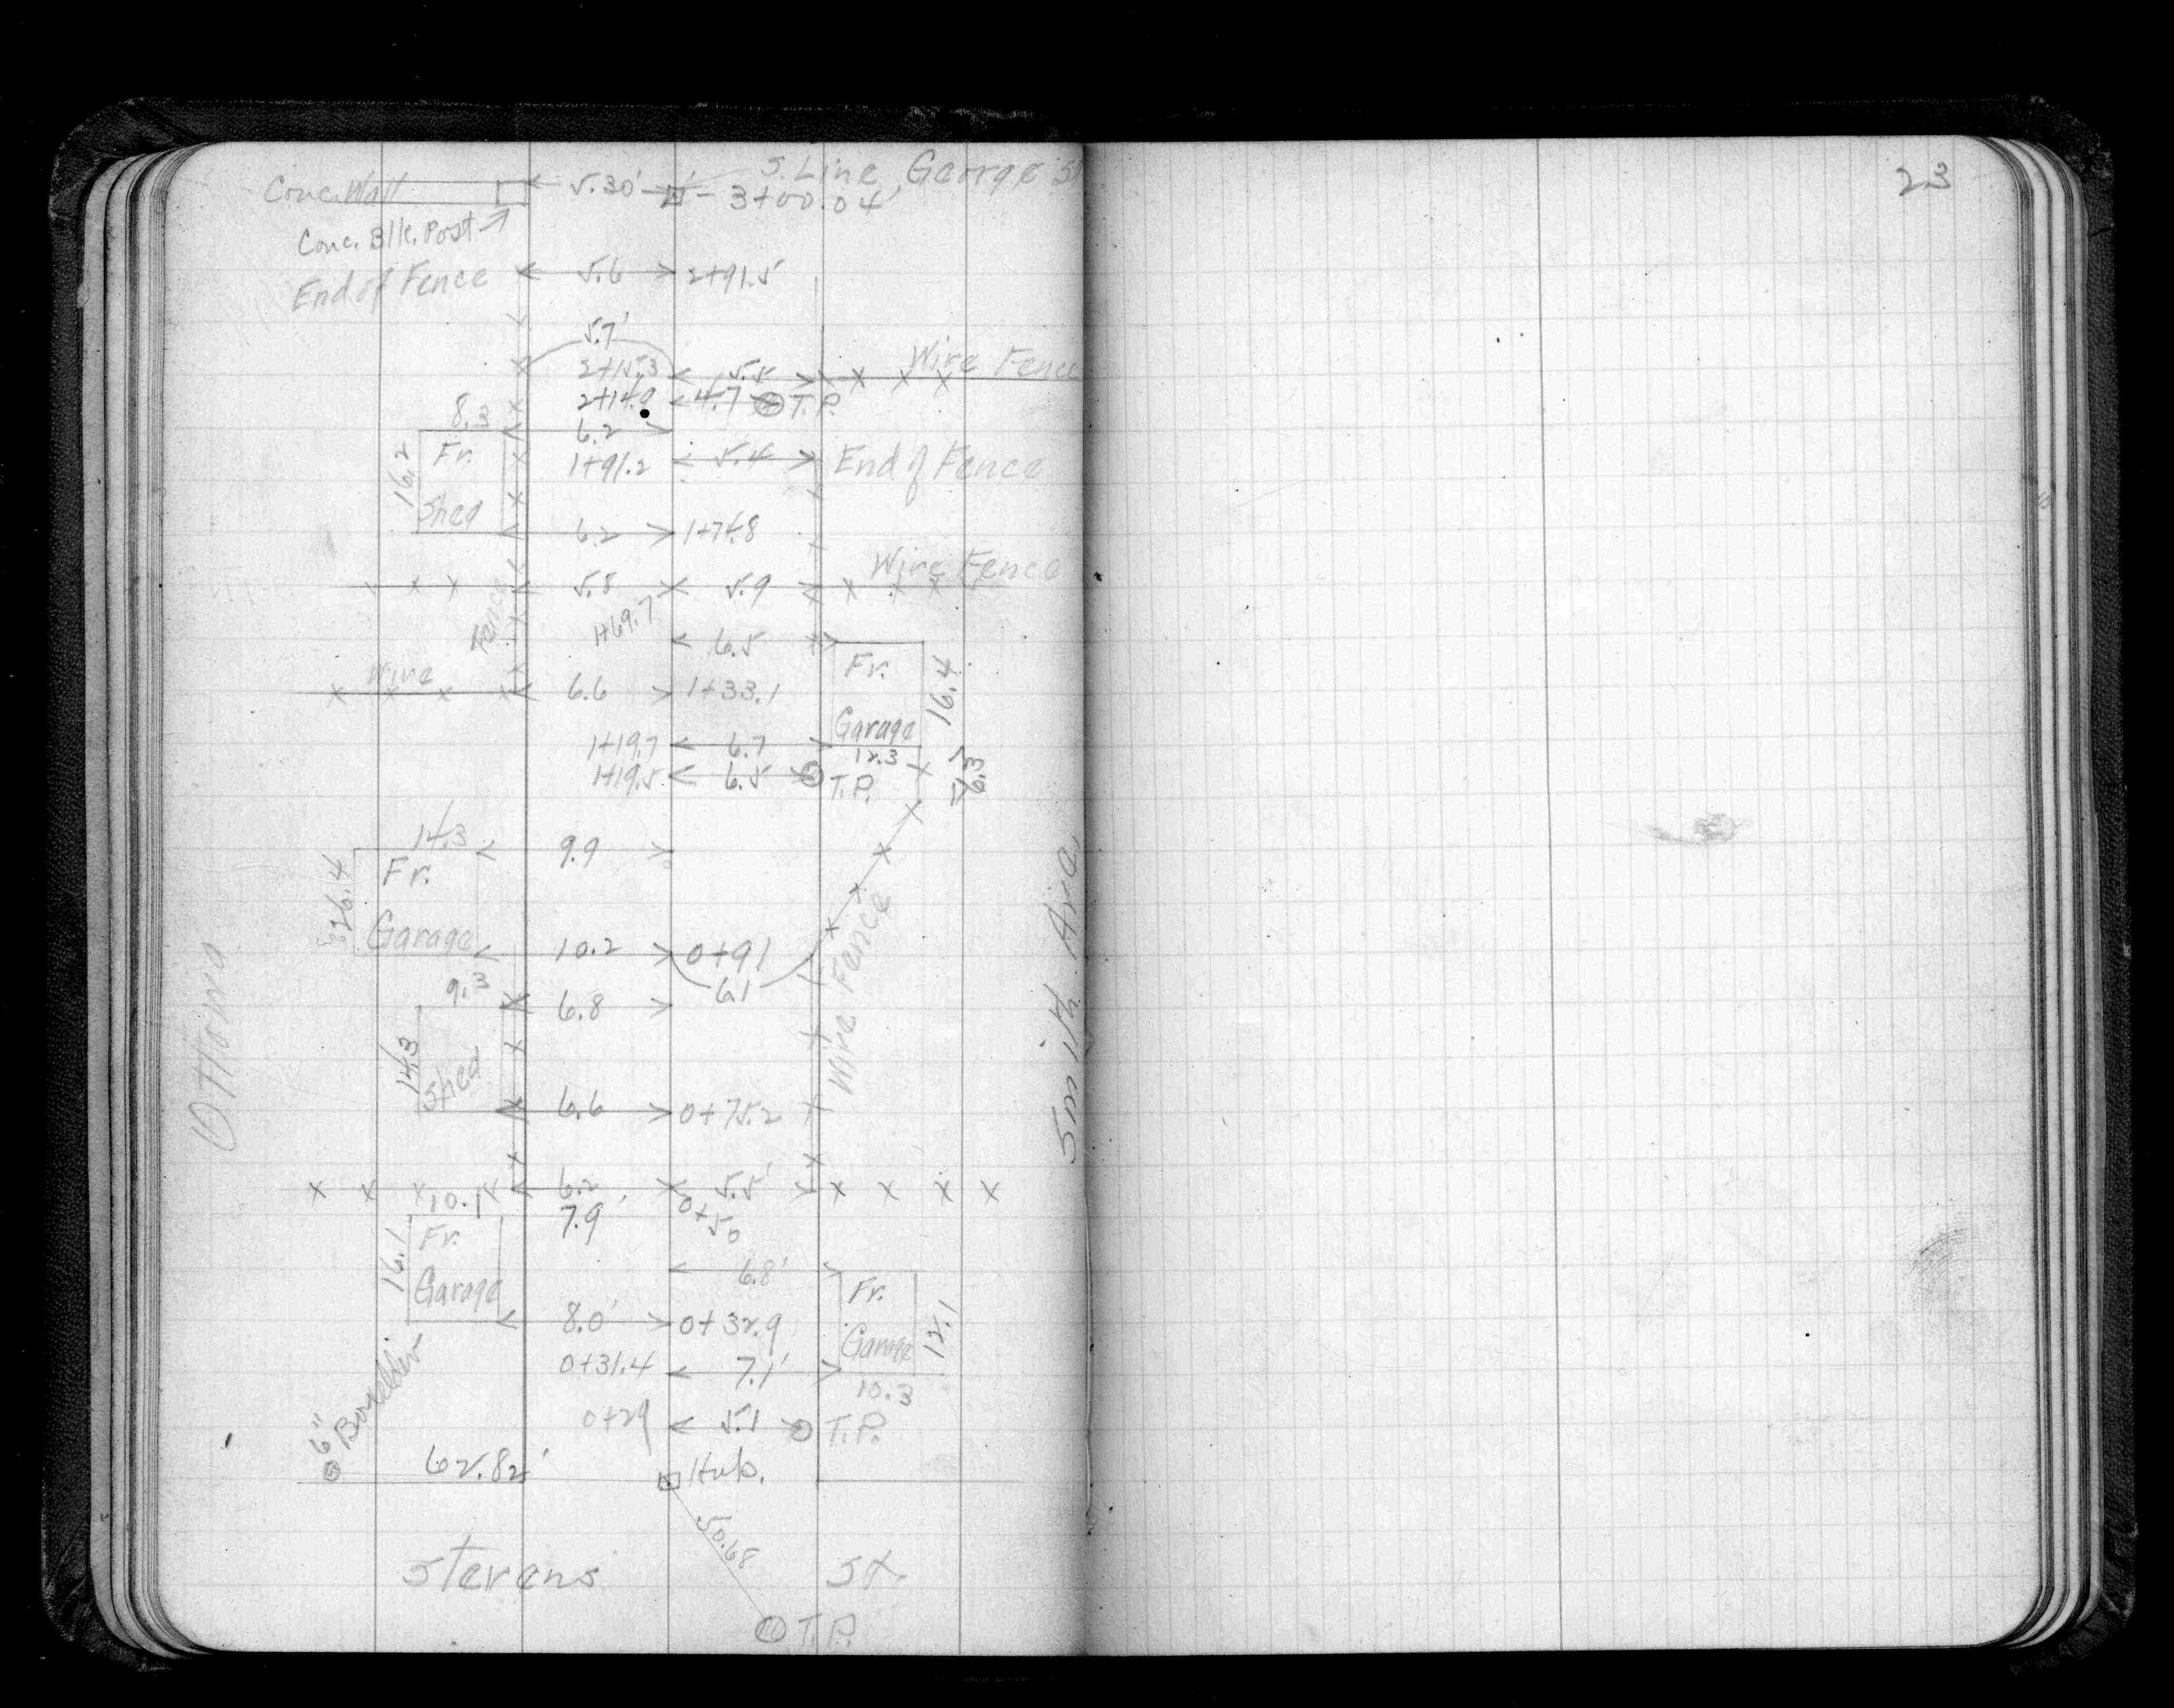 S. Line George St
Conc. Wall 5.30' 3+00.04'
Conc. Blk. Post
End of Fence 5.6 2+91.5
5.7'
2+15.3 5.5 Wire Fence
2+14.9 4.7 T.P.
8.3 6.2
16.2 Fr. 1+91.2 5.4 End of Fence
Shed 6.2 1+74.8
Wire Fence
5.8 5.9
Fence 1+69.7 6.5
Fr. 16.4
Wire 6.6 1+33.1
Garage
1+19.7 6.7 12.3
1+19.5 6.5 T.P. 6.3
14.3 9.9
26.4 Fr.
Garage 10.2 0+91
6.1
9.3 6.8 Wire Fence
14.3 Shed 6.6 0+75.2
Ottawa
Smith Ave.
6.2 5.5'
10.1 7.9' 0+50
16.1 Fr.
Garage 6.8'
Fr.
8.0' 0+32.9 Garage 12.1
0+31.4 7.1'
10.3
0+29 5.1 T.P.
6" Boxelder
62.82' Hub.
50.68
Stevens St.
T.P.
23